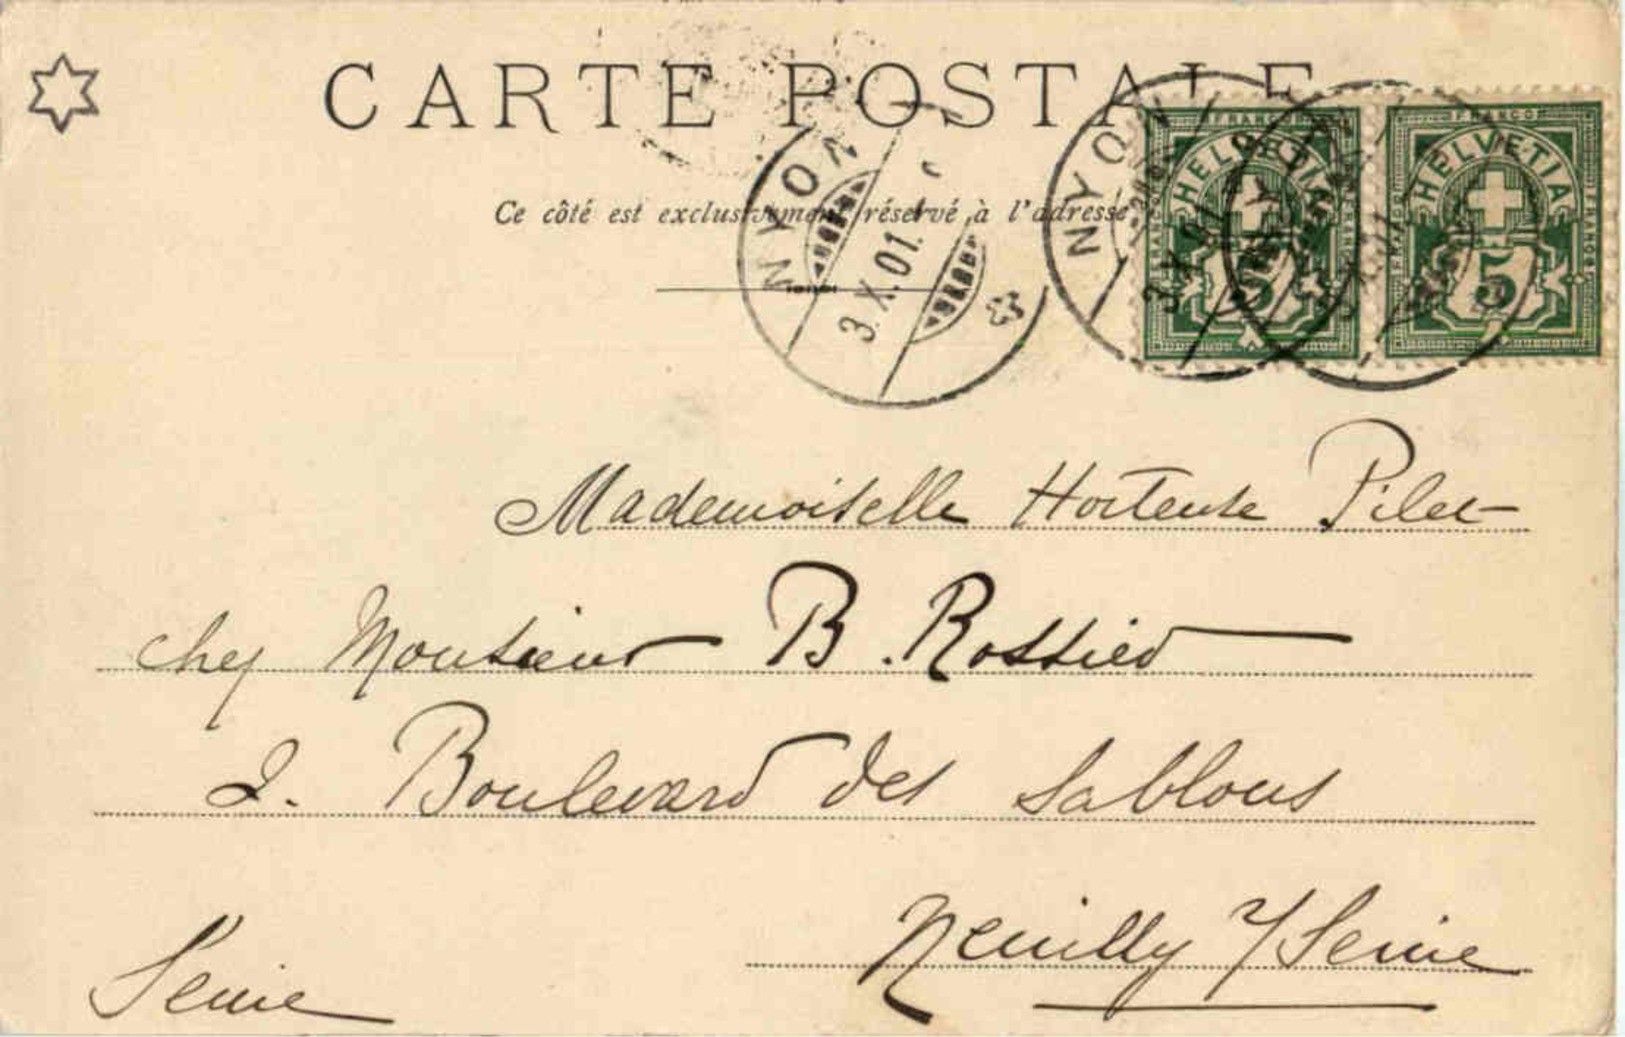 CARTE POSTALE
Ce côté est exclusivement réservé à l'adresse
NYON
3.X.01.
NYON
3.X.01
FRANCO
HELVETIA
5
FRANCO
HELVETIA
5
Mademoiselle Hortense Pilet
chez Monsieur B. Rossier
2. Boulevard des Sablons
Neuilly s/Seine
Seine